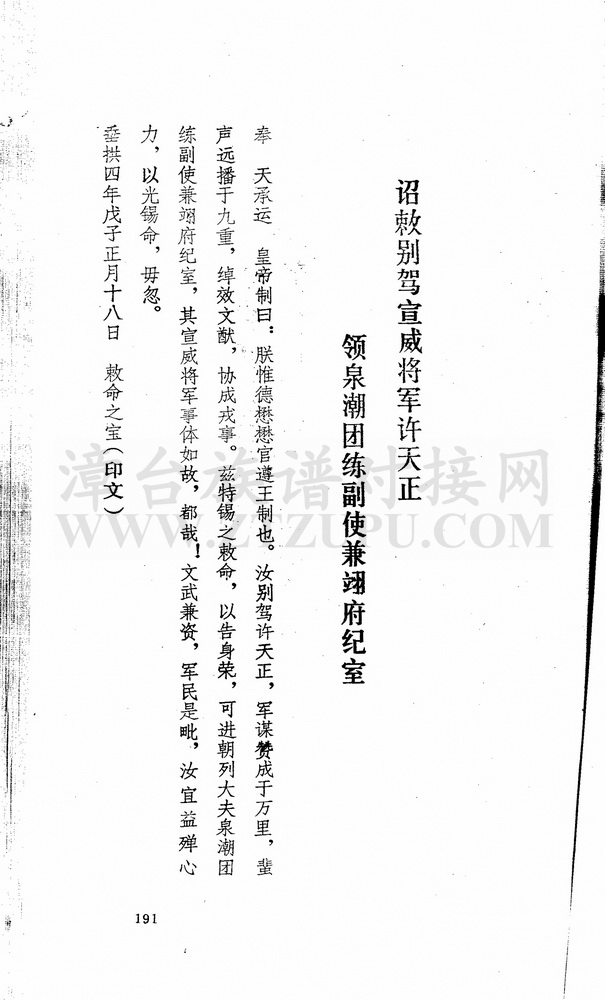 诏敕别驾宣威将军许天正
领泉潮团练副使兼翊府纪室
奉 天承运 皇帝制曰：朕惟德懋懋官遵王制也。汝别驾许天正，军谋赞成于万里，蜚
声远播于九重，绰效文猷，协成戎事。兹特锡之敕命，以告身荣，可进朝列大夫泉潮团
练副使兼翊府纪室，其宣威将军事体如故，都哉！文武兼资，军民是毗，汝宜益殚心
力，以光锡命，毋忽。
垂拱四年戊子正月十八日 敕命之宝（印文）
191
漳台族谱对接网
WWW.ZTZUPU.COM